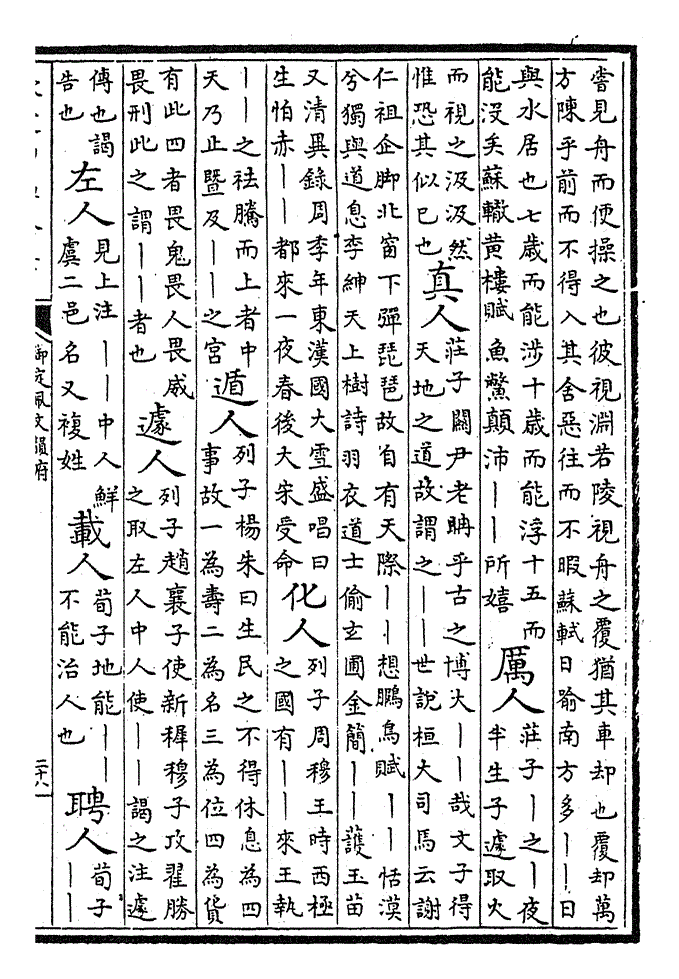 嘗見舟而便操之也彼視淵若陵視舟之覆猶其車却也覆却萬
方陳乎前而不得入其舍惡往而不暇蘇軾日喻南方多丨丨日
與水居也七歲而能涉十歲而能浮十五而
能沒矣蘇轍黃樓賦魚鱉顛沛丨丨所嬉
厲人
莊子丨之丨夜
半生子遽取火
而視之汲汲然
惟恐其似己也
真人
莊子關尹老聃乎古之博大丨丨哉文子得
天地之道故謂之丨丨世說桓大司馬云謝
仁祖企脚北窗下彈琵琶故自有天際丨丨想鵬鳥賦丨丨恬漠
兮獨與道息李紳天上樹詩羽衣道士偷玄圃金簡丨丨護玉苗
又清異錄周季年東漢國大雪盛唱曰
生怕赤丨丨都來一夜春後大宋受命
化人
列子周穆王時西極
之國有丨丨來王執
丨丨之祛騰而上者中
天乃止曁及丨丨之宮
遁人
列子楊朱曰生民之不得休息為四
事故一為壽二為名三為位四為貨
有此四者畏鬼畏人畏威
畏刑此之謂丨丨者也
遽人
列子趙襄子使新穉穆子攻翟勝
之取左人中人使丨丨謁之注遽
傳也謁
告也
左人
見上注丨丨中人鮮
虞二邑名又複姓
載人
荀子地能丨丨
不能治人也
聘人
荀子
丨丨
御定佩文韻府
二十八